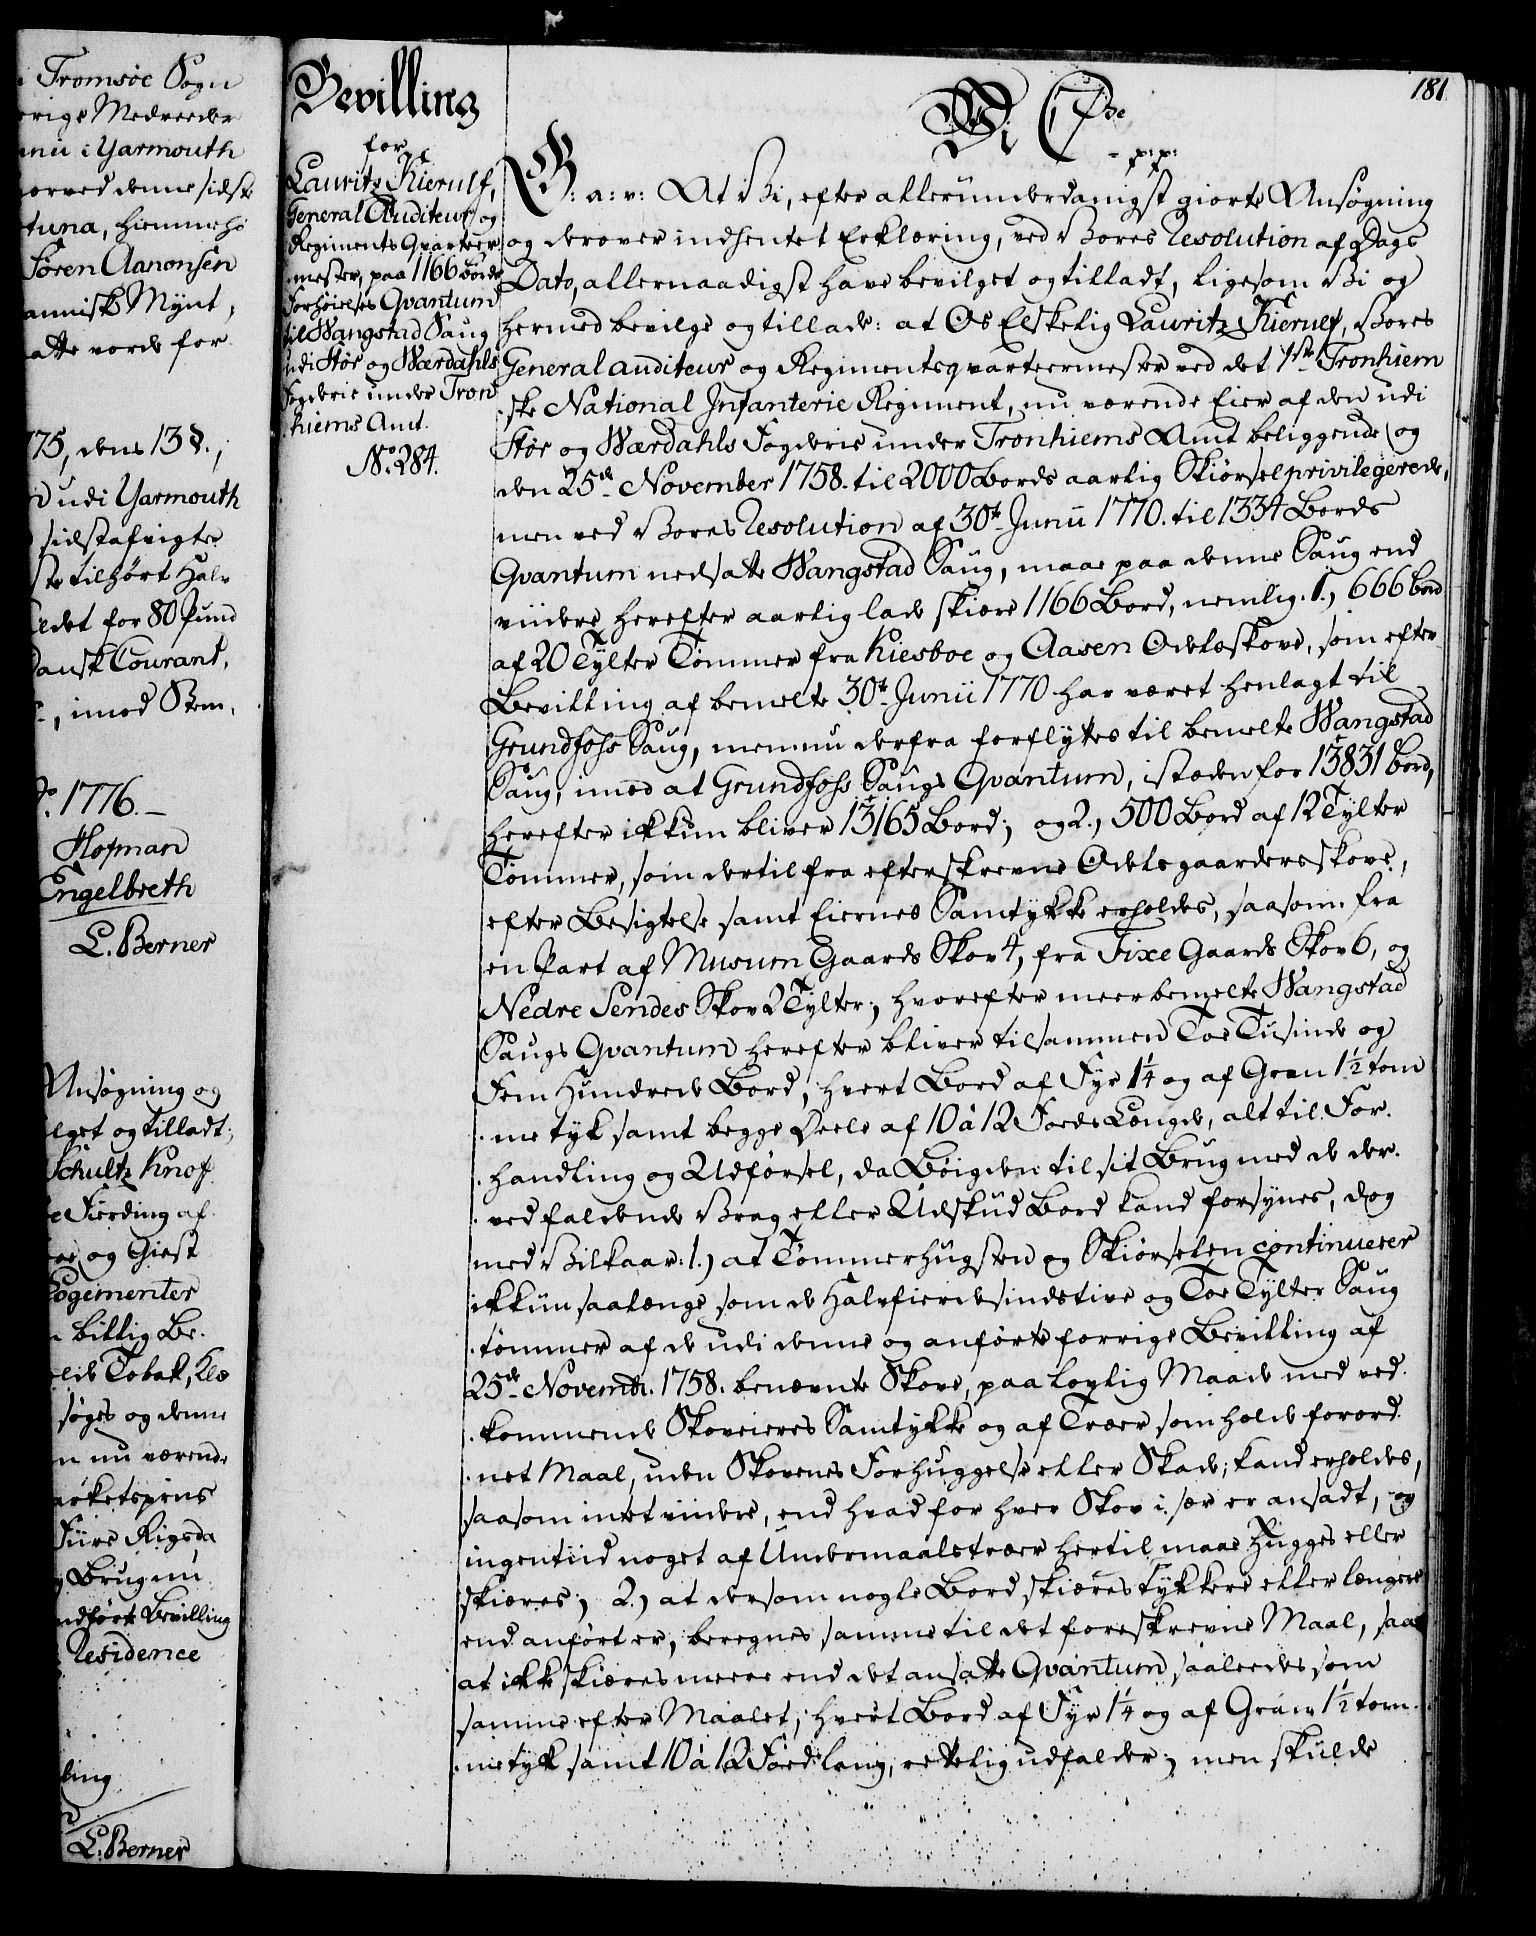 i Tromsøe Sogn
errige Medreeder
nu i Yarmouth
orved denne sidst
tuna, hiemmehø
Søren Aanonsen
annisk Mynt,
atte vorde for
75, dens 13 §.,
D udi Yarmouth
sidstafvigte
ste tilhørt Halv
ledet for 80 Pund
Dansk Courant,
, imod Stem,
1776.
Hofman
Engelbreth
L. Berner
Ansøgning og
lget og tilladt;
Schultz Knof
e Fierding af
og Giest
Logementer
billig Be
Tobak, Klæ
søges og denne
n nu værende
Fiire Rigsda
g Brug nu
ndført Bevilling
Residence
ling
L. Berner
181
Bevilling
for
Lauritz Kierulf,
General Auditeur og
Regiments Qvarteer
mester, paa 1166 Bords
Forhøielses Qvantum
til Wangstad Saug
udi Stør og Wærdahls
Fogderie under Tron
hiems Amt.
No. 284.
Vi C 7de
p: p:
G: a: v: At Vi, efter allerunderdanigst giorte Ansøgning
og derover indhentet Erklæring, ved Vores Resolution af Dags
Dato, allernaadigst have bevilget og tilladt, ligesom Vi og
hermed bevilge og tillade: at Os Elskelig Lauritz Kierulf, Vores
General auditeur og Regimentsqvarteermester ved det 1ste Tronhiem
ske National Infanterie Regiment, nu værende Eier af den udi
Stør og Wærdahls Fogderie under Tronhiems Amt beliggende (og
den 25de November 1758. til 2000 Bords aarlig Skiørsel privilegerede,
men ved Vores Resolution af 30te Junii 1770. til 1334 Bords
Qvantum nedsatte Wangstad Saug, maae paa denne Saug end
viidere herefter aarlig lade skiære 1166 Bord, nemlig. 1., 666 bord
af 20 Tylter Tømmer fra Kiesboe og Aasen Odelsskove, som efter
Bevilling af bemelte 30te Junii 1770 har været henlagt til
Grundfohs Saug, men nu derfra forflyttes til bemelte Wangstad
Saug, imod at Grundfohs Saugs Qvantum, istæden for 13831 bord,
herefter ikkun bliver 13165 Bord; og 2., 500 Bord af 12 Tylter
Tømmer, som dertil fra efterskrevne Odelsgaarders skove,
efter Besigtelse samt Eiernes Samtykke erholdes, saasom fra
en Part af Musum Gaards Skov 4, fra Fixe Gaards Skov 6, og
Nedre Sendes Skov 2 Tylter; hvorefter meerbemelte Wangstad
Saugs Qvantum herefter bliver tilsammen Toe Tusinde og
Fem Hundrede Bord, hvert Bord af Fyr 1¼ og af Gran 1½ tom
me tyk samt begge Deele af 10 à 12 Foeds Længde, alt til For
handling og Udførsel, da Bøigden til sit Brug med de der
ved faldende Vrag eller Udskud Bord kand forsynes, dog
med Vilkaar: 1.) at Tømmerhugsten og Skiørselen continuerer
ikkun saalænge som de Halvfierdesindstive og Toe Tylter Saug
tømmer af de udi denne og anførte forrige Bevilling af
25de Novembr. 1758. benævnte Skove, paa lovlig Maade med ved
kommende Skoveieres Samtykke og af Træer som holde forord
net Maal, uden Skovenes Forhuggelse eller Skade, kand erholdes,
saasom intet viidere, end hvad for hver Skov i sær er ansadt, og
ingentiid noget af Undermaalstræer hertil maae hugges eller
skiæres; 2.) at dersom nogle Bord skiæres tykkere eller længere
end anført er, beregnes samme til det foreskrevne Maal, saa
at ikke skiæres meere end det ansatte Qvantum, saaledes som
samme efter Maalet, hvert Bord af Fyr 1¼ og af Gran 1½ tom
me tyk samt 10 à 12 Foed lang, rettelig udfalder; men skulde